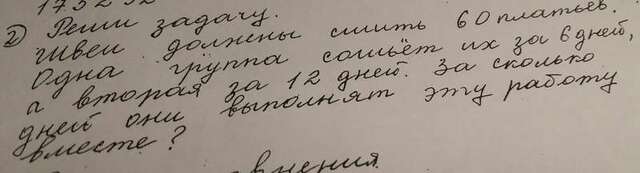 2) Реши задачу.
Швеи должны сшить 60 платьев.
Одна группа сошьёт их за 6 дней,
а вторая за 12 дней. За сколько
дней они выполнят эту работу
вместе?